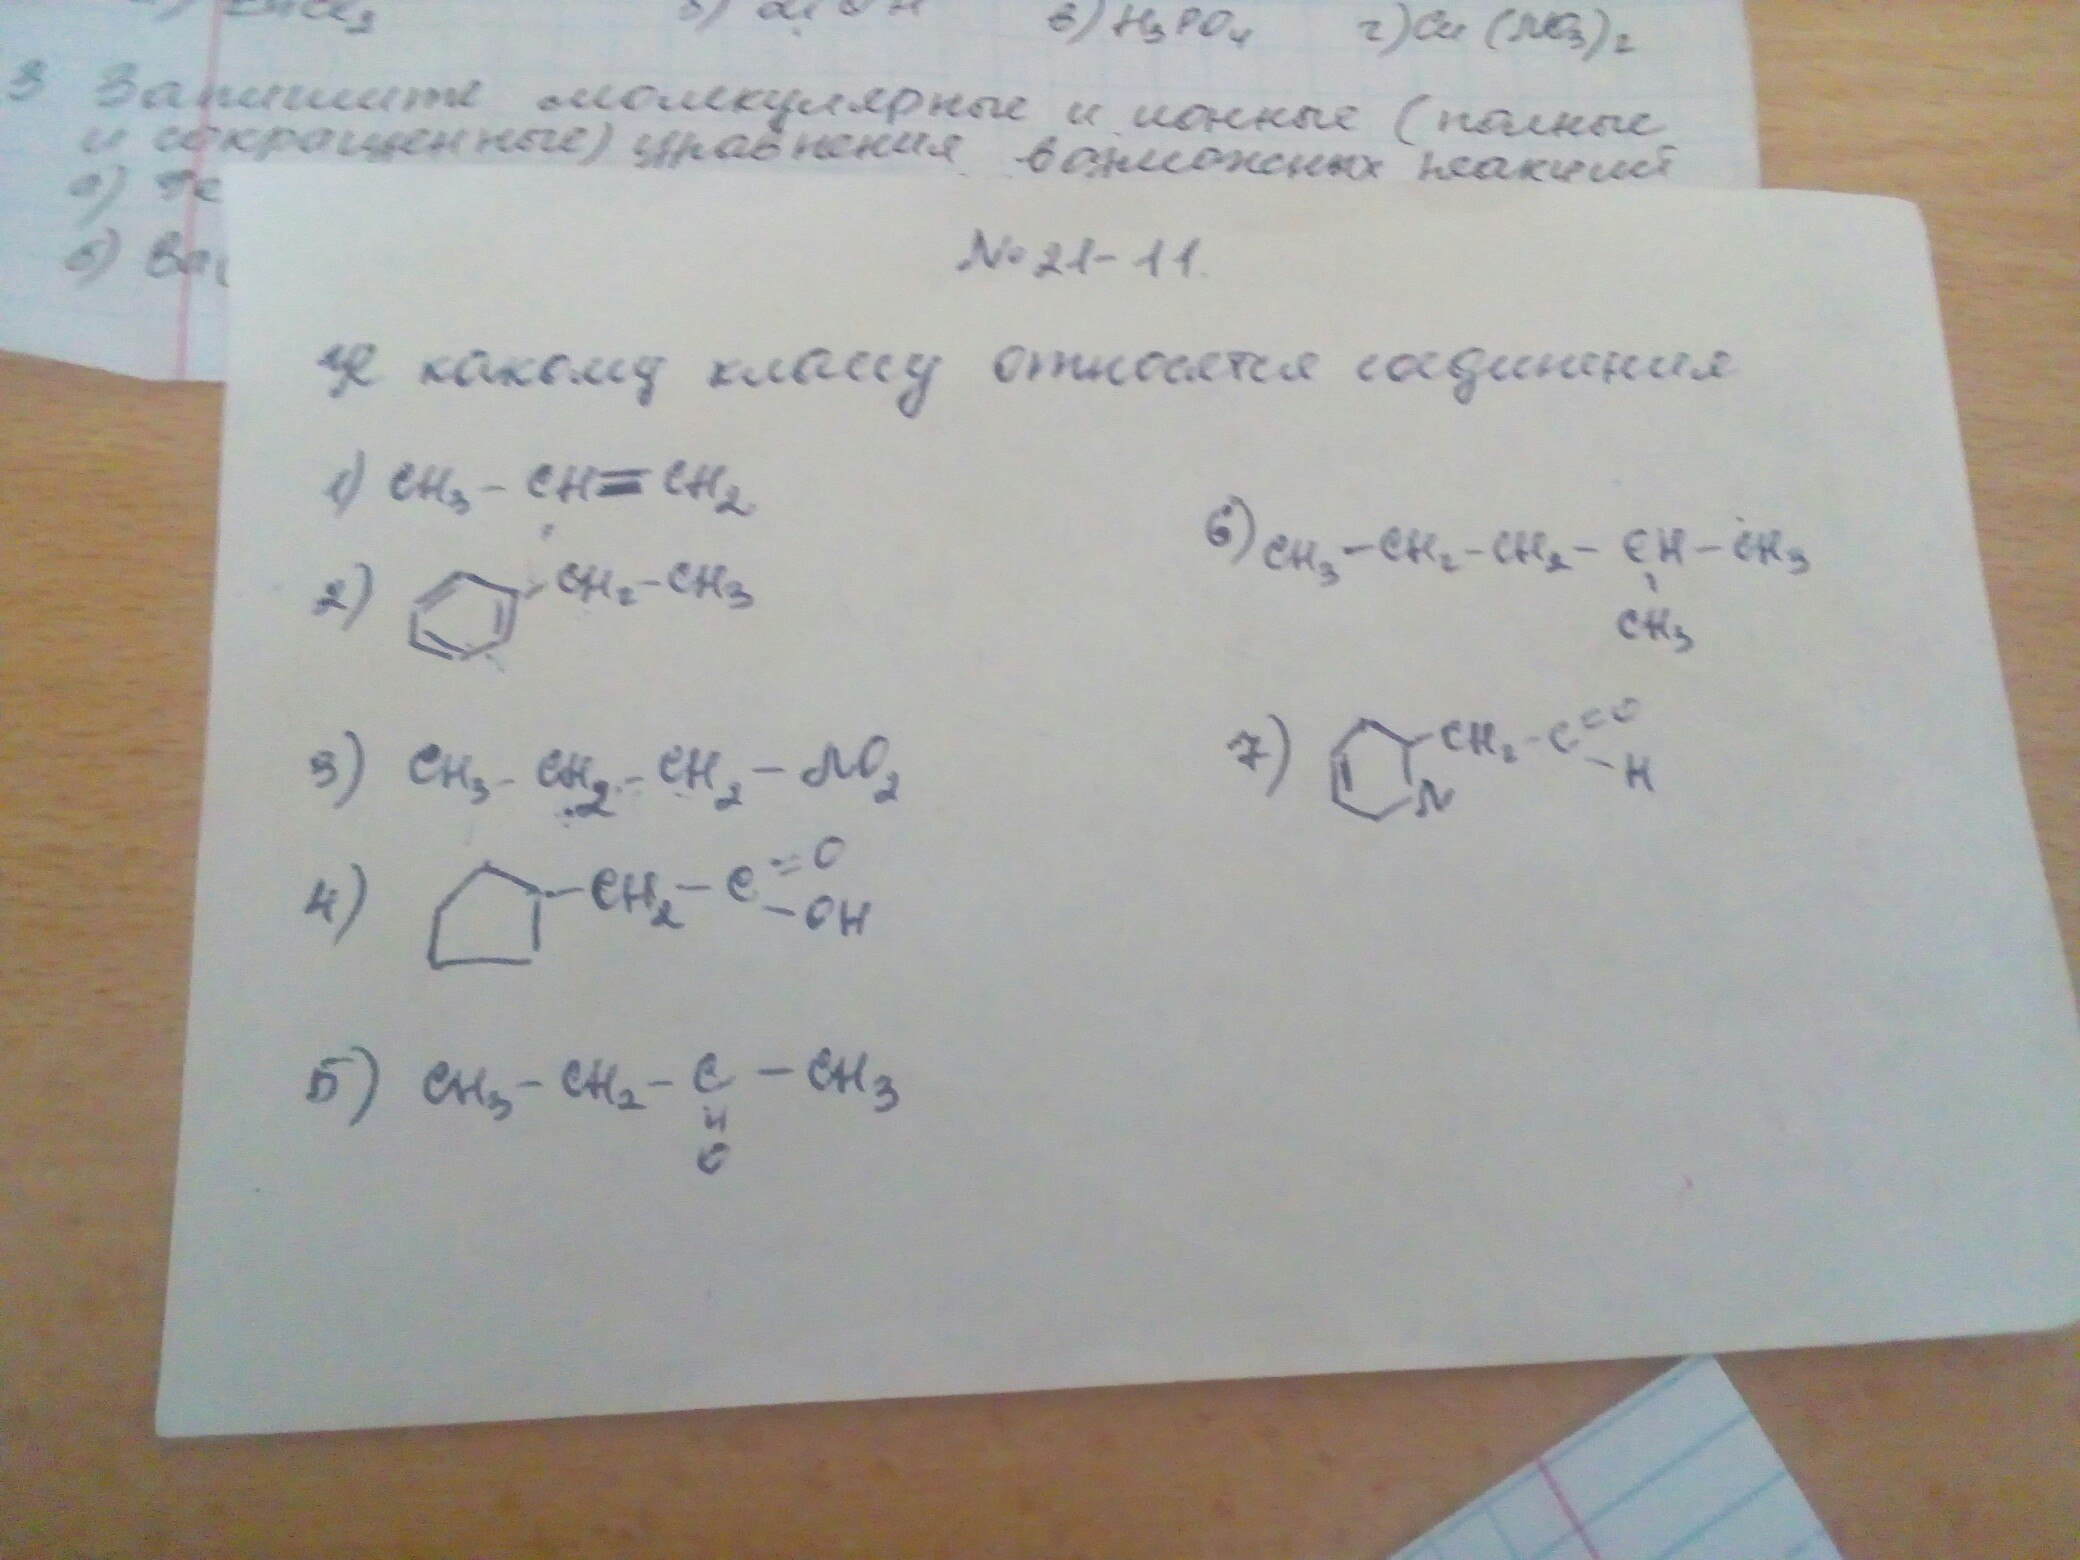 в) H₃PO₄ г) Cu(NO₃)₂
3 Запишите молекулярные и ионные (полные
и сокращенные) уравнения возможных реакций
а)
б)
№21-11.
К какому классу относятся соединения
1) CH₃-CH=CH₂
2) CH₂-CH₃
3) CH₃-CH₂-CH₂-NO₂
4) CH₂-C=O
-OH
5) CH₃-CH₂-C-CH₃
O
6) CH₃-CH₂-CH₂-CH-CH₃
CH₃
7) N CH₂-C=O
-H